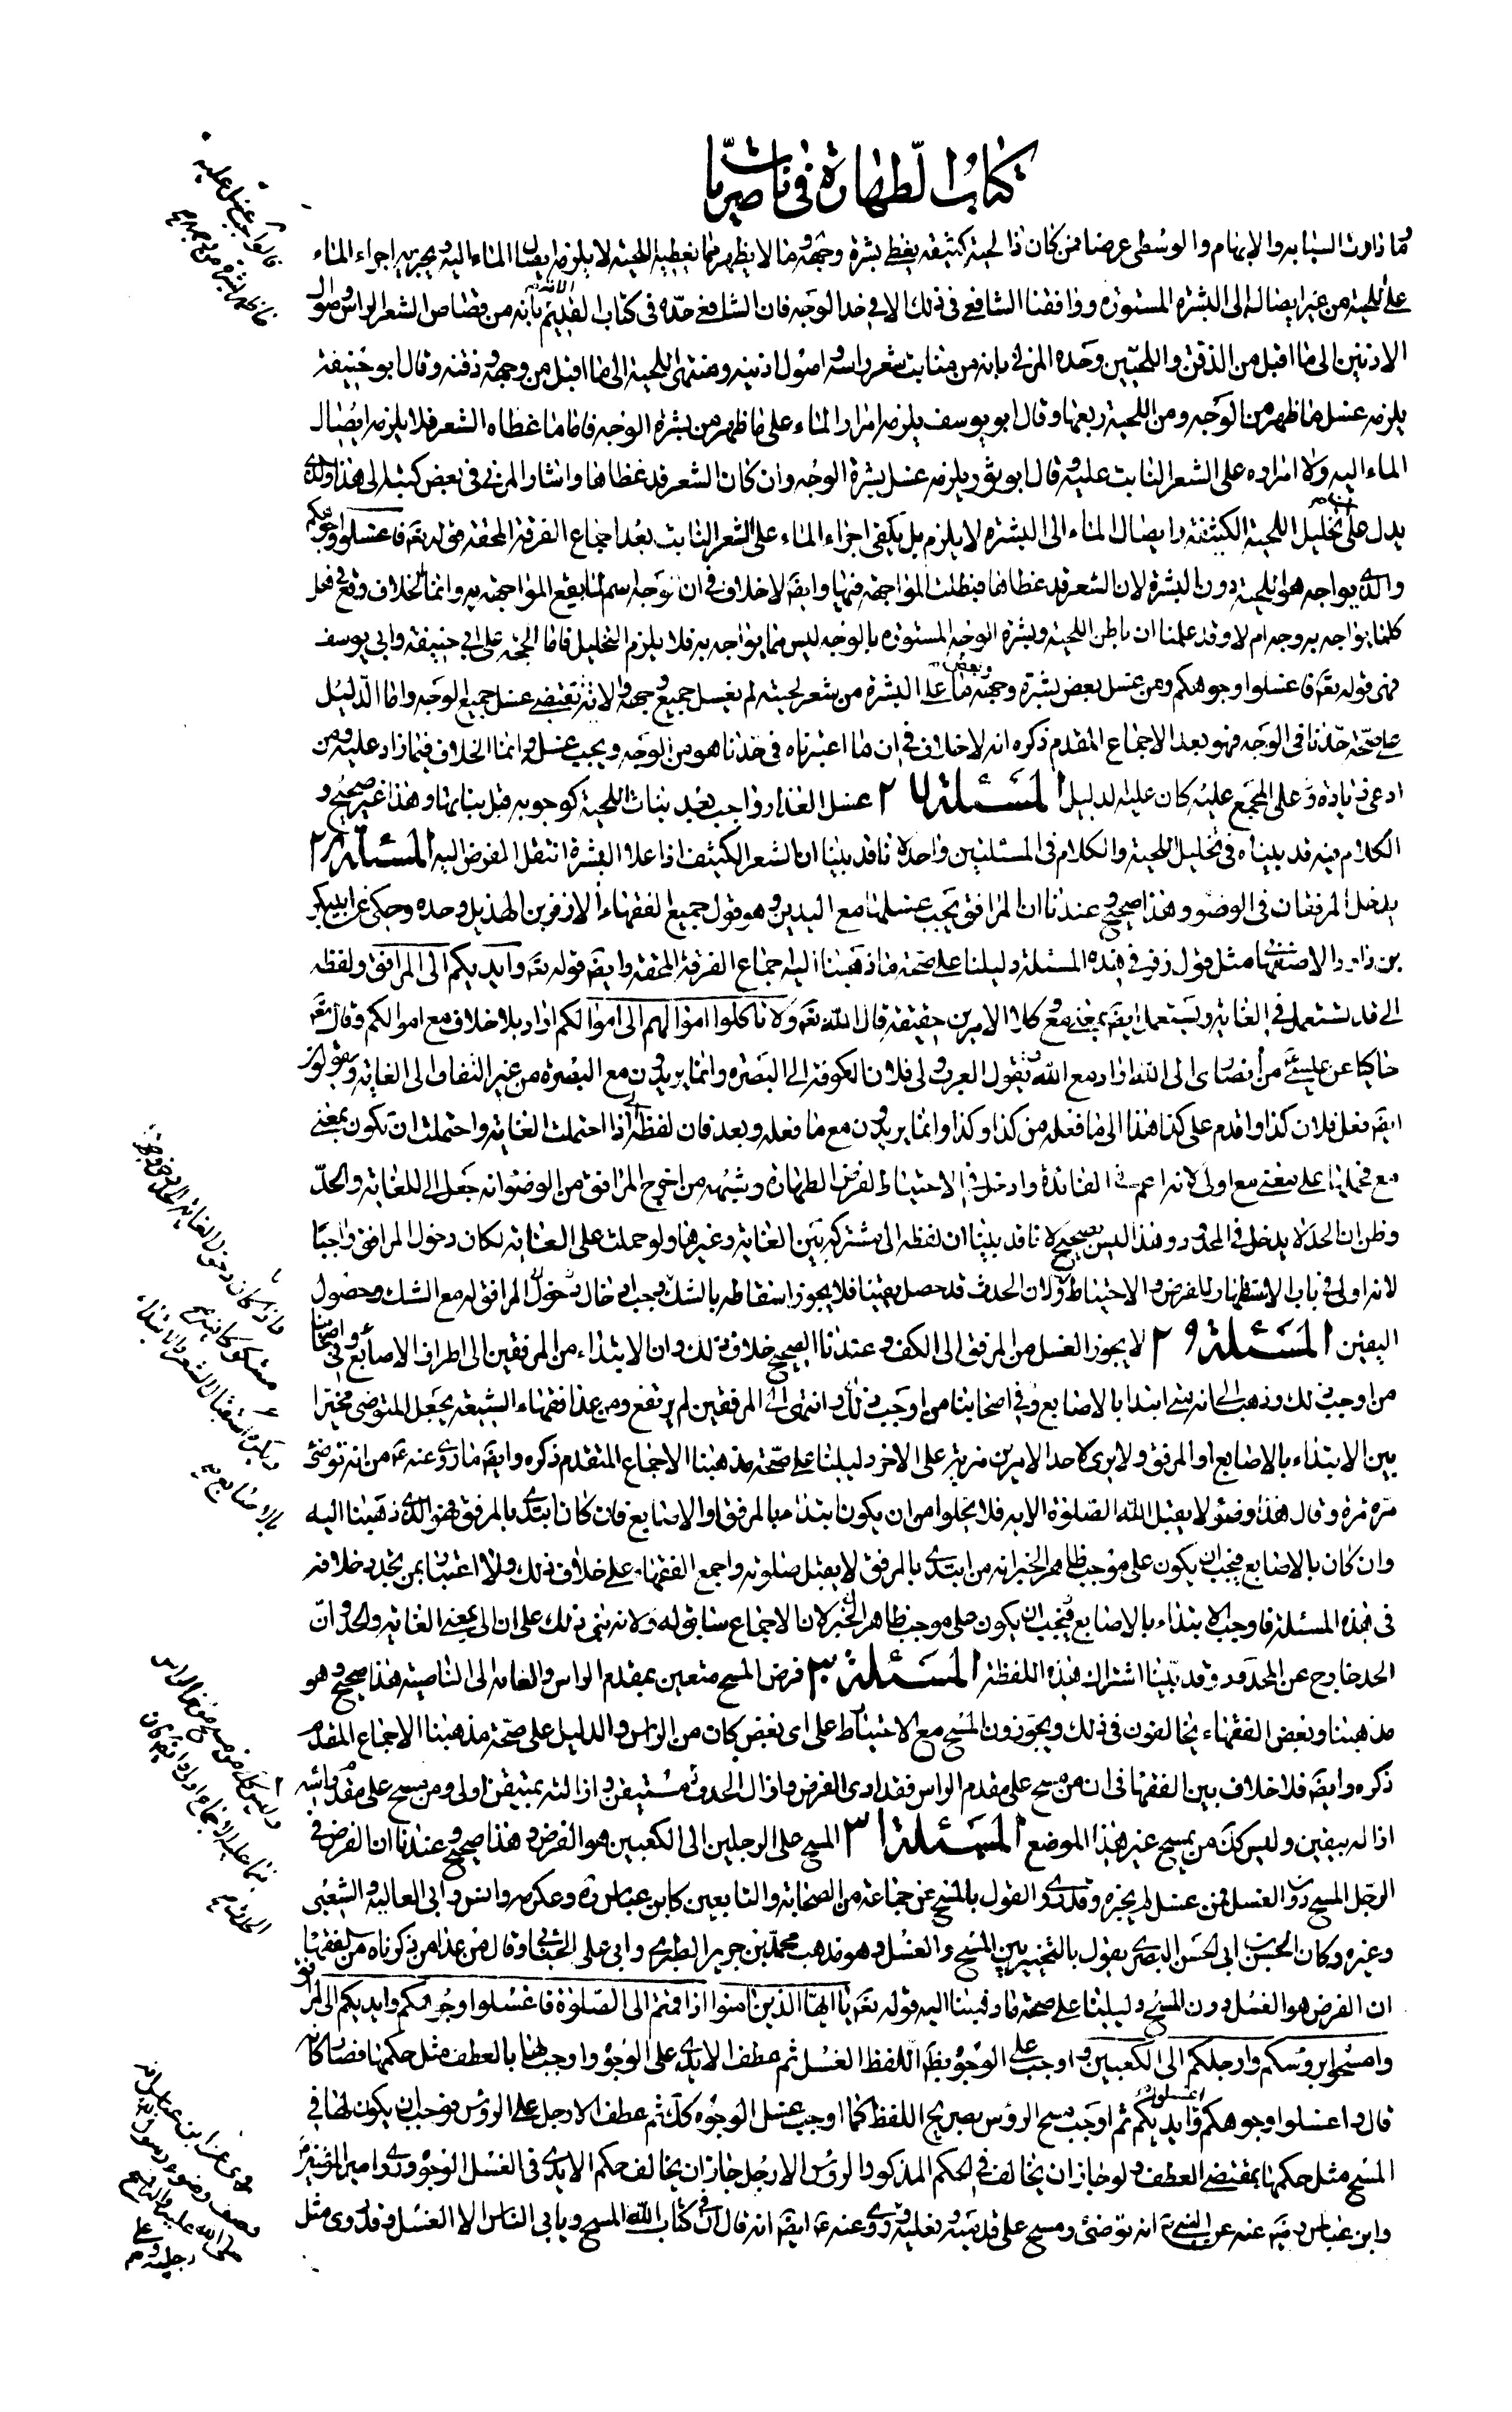 كتاب الطهارة في ناصريات
وما دارت السبابة والابهام والوسطى عرضا فمن كان ذا لحية كثيفة يغطي بشرة وجهه فما لا يظهر مما يغطيه اللحية لا يلزمه ايصال الماء اليه ويجزيه اجراء الماء
على اللحية من غير ايصاله الى البشرة المستورة ووافقنا الشافعي في ذلك الا في حد الوجه فان الشافعي حده في كتاب الام بانه من قصاص الشعر الراس واصول
الاذنين الى ما اقبل من الذقن واللحيين وحده المزني بانه من منابت شعر راسه واصول اذنيه ومنتهى اللحية الى ما اقبل من وجهه وذقنه وقال ابو حنيفة
يلزمه غسل ما ظهر من الوجه ومن اللحية ربعها وقال ابو يوسف يلزمه امرار الماء على ما ظهر من بشرة الوجه فاما ما غطاه الشعر فلا يلزمه ايصال
الماء اليه ولا امراره على الشعر النابت عليه وقال ابو ثور يلزمه غسل بشرة الوجه وان كان الشعر قد غطاها واشار المزني في بعض كتبه الى هذا والذي
يدل على ان تخليل اللحية الكثيفة وايصال الماء الى البشرة لا يلزم بل يكفي اجراء الماء على الشعر النابت بعد اجماع الفرقة المحقة قوله تعه فاغسلوا وجوهكم
والذي يواجه هو اللحية دون البشرة لان الشعر قد غطاها فبطلت المواجهة فيها وايضه لا خلاف في ان الوجه اسم لما يقع المواجهة به وانما الخلاف وقع في هل
كلما يواجه به وجه ام لا وقد علمنا ان باطن اللحية وبشرة الوجه المستورة بالوجه ليس مما يواجه به فلا يلزم التخليل فاما الحجة على ابي حنيفة وابي يوسف
فهي قوله تعه فاغسلوا وجوهكم ومن غسل بعض بشرة وجهه وبعض ما علا البشرة من شعر لحيته لم يغسل جميع وجهه والاية تقتضي غسل جميع الوجه واما الدليل
على صحة حدنا في الوجه فهو بعد الاجماع المقدم ذكره انه لا خلاف في ان ما اعتبرناه في حدنا هو من الوجه ويجب غسله وانما الخلاف فيما زاد عليه ومن
ادعى زيادة على المجمع عليه كان عليه الدليل المسئلة ٢٧ غسل العذار واجب بعد نبات اللحية كوجوبه قبل نباتها وهذا غير صحيح و
الكلام فيه قد بيناه في تخليل اللحية والكلام في المسئلتين واحد لانا قد بينا ان الشعر الكثيف اذا علا البشرة انتقل الفرض اليه المسئلة ٢٨
يدخل المرفقان في الوضوء وهذا صحيح وعندنا ان المرافق يجب غسلها مع اليدين وهو قول جميع الفقهاء الا زفر بن الهذيل وحده وحكي عن ابي بكر
بن داود الاصفهاني مثل قول زفر في هذه المسئلة دليلنا على صحة ما ذهبنا اليه اجماع الفرقة المحقة وايضه قوله تعه وايديكم الى المرافق ولفظة
الى قد تستعمل في الغاية وتستعمل ايضه بمعنى مع وكلا الامرين حقيقة قال الله تعه ولا تاكلوا اموالهم الى اموالكم اراد بلا خلاف مع اموالكم وقال تعه
حاكيا عن عيسى ع من انصاري الى الله اراد مع الله وتقول العرب ولي فلان الكوفة الى البصرة وانما يريدون مع البصرة من غير التفات الى الغاية ويقولون
ايضه فعل فلان كذا واقدم على كذا هذا الى ما فعله من كذا وكذا وانما يريدون مع ما فعله وبعد فان لفظة الى اذا احتملت الغاية واحتملت ان تكون بمعنى
مع فحملها على معنى مع اولى لانه اعم في الفائدة وادخل في الاحتياط لفرض الطهارة وشبهة من اخرج المرافق من الوضوء انه جعل الى للغاية والحد
وظن ان الحد لا يدخل في المحدود وهذا ليس بصحيح لانا قد بينا ان لفظة الى مشتركة بين الغاية وغيرها ولو حملت على الغاية لكان دخول المرافق واجبا
لانه اولى في باب الاستظهار للفرض والاحتياط ولان الحدث قد حصل يقينا فلا يجوز اسقاطه بالشك وجب ادخال المرافق له مع الشك وحصول
اليقين المسئلة ٢٩ لا يجوز الغسل من المرفق الى الكف وعندنا الصحيح خلاف ذلك وان الابتداء من المرفقين الى اطراف الاصابع وفي اصحابنا
من اوجب ذلك وذهب الى انه متى ابتدا بالاصابع وفي اصحابنا من اوجب ذلك وانتهى الى المرفقين لم يرتفع ومن عدا فقهاء الشيعة يجعل المتوضي مخيرا
بين الابتداء بالاصابع او المرفق ولا يرى لاحد الامرين مزية على الاخر دليلنا على صحة مذهبنا الاجماع المتقدم ذكره وايضه ما روي عنه عه من انه توضئ
مرة مرة وقال هذا وضوء لا يقبل الله الصلوة الا به فلا يخلوا من ان يكون ابتداء بالمرفق او الاصابع فان كان ابتدى بالمرفق فهو الذي ذهبنا اليه
وان كان بالاصابع فيجب ان يكون على موجب ظاهر الخبر انه من ابتدى بالمرفق لا يقبل صلوته واجمع الفقهاء على خلاف ذلك ولا اعتبار بمن تجدد خلافه
في هذه المسئلة فاوجب الابتداء بالاصابع فيجب ان يكون على موجب ظاهر الخبر لان الاجماع سابق له ولانه بنى ذلك على ان الى بمعنى الغاية والحد وان
الحد خارج عن المحدود وقد بينا اشتراك هذه اللفظة المسئلة ٣٠ فرض المسح متعين بمقدم الراس والغاية الى الناصية هذا صحيح وهو
مذهبنا وبعض الفقهاء يخالفون في ذلك ويجوزون المسح مع الاحتياط على اي بعض كان من الراس والدليل على صحة مذهبنا الاجماع المقدم
ذكره وايضه فلا خلاف بين الفقهاء في ان من مسح على مقدم الراس فقد ادى الفرض وازال الحدث مستيقن وازالته بمتيقن اولى ومن مسح على مقدم راسه
ازاله بيقين وليس كك من مسح غير هذا الموضع المسئلة ٣١ المسح على الرجلين الى الكعبين هو الفرض وهذا صحيح وعندنا ان الفرض في
الرجل المسح دون الغسل فمن غسل لم يجزه وقد روي القول بالمسح عن جماعة من الصحابة والتابعين كابن عباس ره وعكرمه وانس وابي العالية والشعبي
وغيره وكان الحسن بن ابي الحسن البصري يقول بالتخيير بين المسح والغسل وهو مذهب محمد بن جرير الطبري وابي علي الجبائي وقال من عدا من ذكرناه من الفقهاء
ان الفرض هو الغسل دون المسح دليلنا على صحة ما ذهبنا اليه قوله تعه يا ايها الذين امنوا اذا قمتم الى الصلوة فاغسلوا وجوهكم وايديكم الى المرافق
وامسحوا برؤسكم وارجلكم الى الكعبين واوجب على الوجوه بظاهر اللفظ الغسل ثم عطف الايدي على الوجوه واوجب لها بالعطف مثل حكمها فصار كانه
قال واغسلوا وجوهكم واغسلوا ايديكم ثم اوجب مسح الرؤس بصريح اللفظ كما اوجب غسل الوجوه كك ثم عطف الارجل على الرؤس فوجب ان يكون لها في
المسح مثل حكمها بمقتضى العطف ولو جاز ان يخالف في الحكم المذكور الرؤس الارجل جاز ان يخالف حكم الايدي في الغسل الوجوه وروى امير المؤمنين ع
وابن عباس رضه عنه عن النبي ص انه توضئ ومسح على قدميه ونعليه وروي عنه عه ايضه انه قال ان في كتاب الله المسح ويابى الناس الا الغسل وقد روي مثل